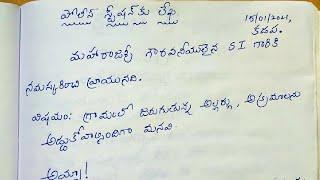 పోలీస్ స్టేషన్ కు లేఖ
15/01/2021,
కడప.
మహారాజశ్రీ గౌరవనీయులైన S I గారికి
నమస్కరించి వ్రాయునది.
విషయం: గ్రామంలో జరుగుతున్న అల్లర్లు, అక్రమాలను
అడ్డుకోవాల్సిందిగా మనవి.
అయ్యా!